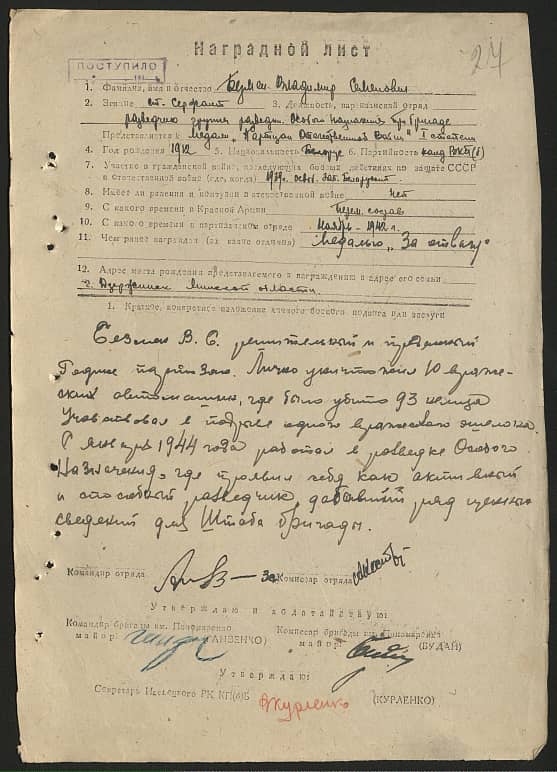 Наградной лист
24
ПОСТУПИЛО
1. Фамилия, имя и отчество Владимир Семенович
2. Звание ст. Сержант 3. Должность, партизанский отряд
разведчик группы разведки Особого Назначения при бригаде
Представляется к медали „Партизан Отечественной Войны" I степени
4. Год рождения 1912 5. Национальность Белорус 6. Партийность канд ВКП(б)
7. Участие в гражданской войне, последующих боевых действиях по защите СССР
в Отечественной войне (где, когда) 1939г. освоб. Зап. Белоруссии
8. Имеет ли ранения и контузии в отечественной войне нет
9. С какого времени в Красной Армии
10. С какого времени в партизанском отряде ноябрь-1942 г.
11. Чем ранее награжден (за какие отличия) Медалью „За отвагу"
12. Адрес места рождения представляемого к награждению и адрес его семьи
г. Дзержинск Минской области.
1. Краткое, конкретное изложение личного боевого подвига или заслуги
В. С. решительный и
партизан. Лично уничтожил 10 враже-
ских автомашин, где было убито 93 немца
Участвовал в подрыве одного вражеского эшелона.
С января 1944 года работал в разведке Особого
Назначения, где проявил себя как активный
и способный разведчик, дававший ряд ценных
сведений для Штаба бригады.
Командир отряда За Комиссар отряда
Утверждаю и ходатайствую:
Командир бригады им. Пономаренко Комиссар бригады им. Пономаренко
майор (ГАНЗЕНКО) майор (БУДАЙ)
Утверждаю:
Секретарь РК КП(б)Б Журленко (КУРЛЕНКО)